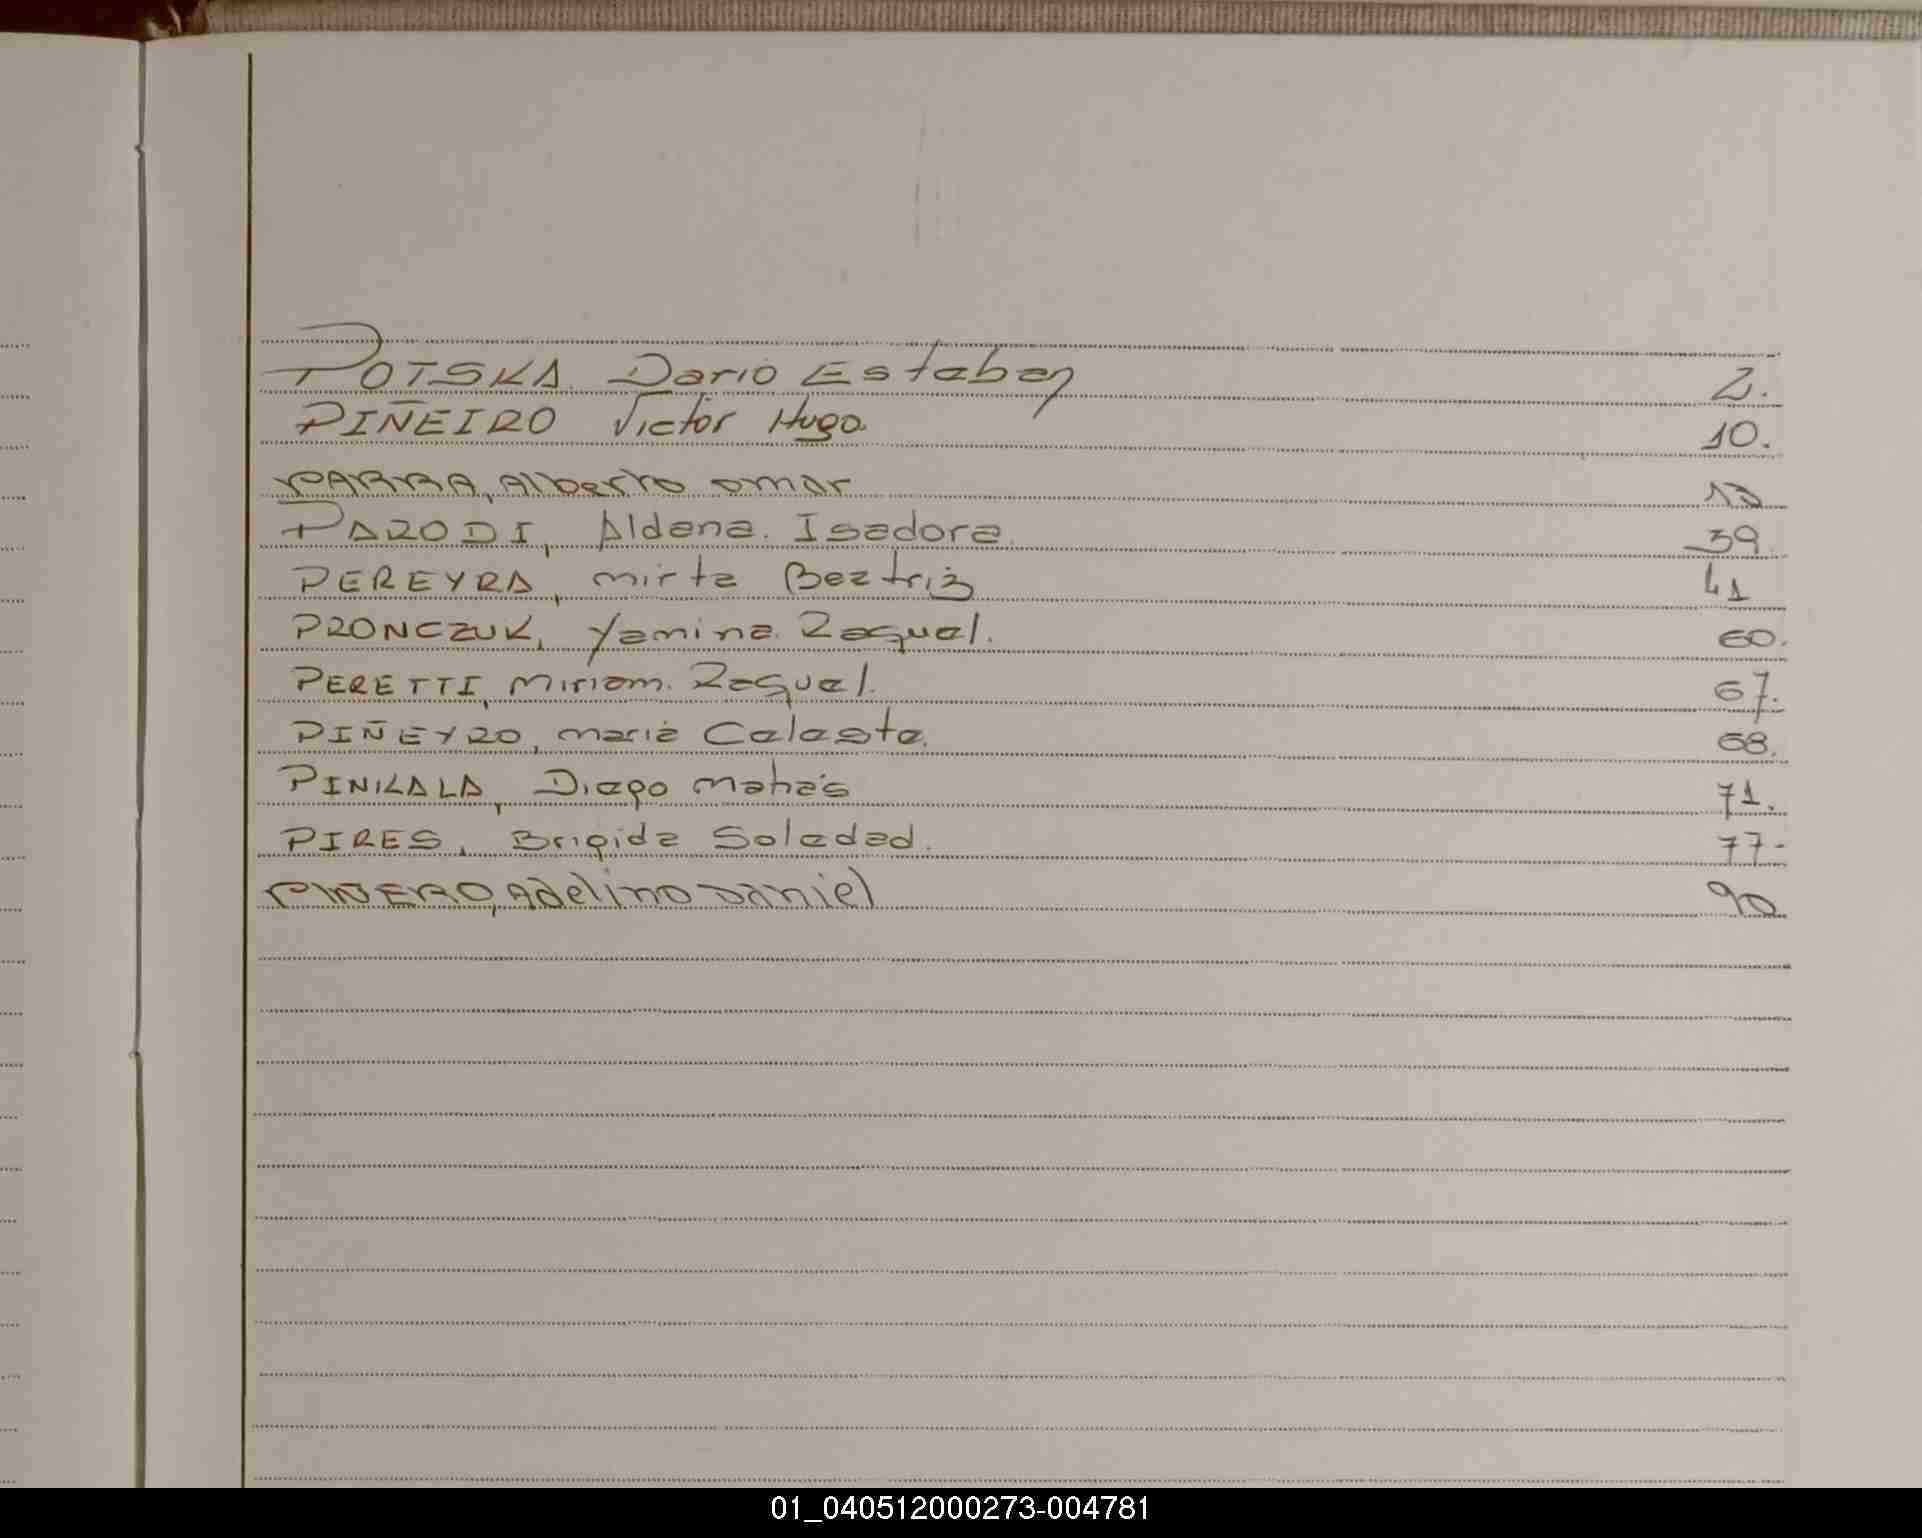 POTSKA Dario Esteban 2.
PIÑEIRO Victor Hugo. 10.
PARRA, Alberto omar
PARODI, Aldana. Isadora. 39.
PEREYRA, mirta Beatriz 41
PRONCZUK, Yamina. Raquel. 60.
PERETTI, Miriam. Raquel. 67.
PIÑEYRO, maria Celeste. 68.
Diego Matías 71.
PIRES, Brigida Soledad. 77-
Adelino Daniel 90
01_040512000273-004781